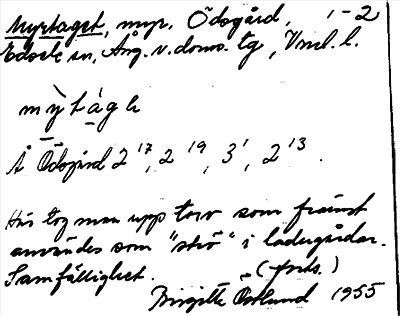 Myrtaget, myr. Ödsgård, 1-2
Edsele sn, Ång. v. doms. tg, Vml. l.
mỳtágẹ
Å Ödsgård 2¹⁷, 2¹⁹, 3¹, 2¹³.
Här tog man upp torv som främst
användes som "strö" i ladugårdar.
Samfällighet. (forts.)
Birgitta Östlund 1955